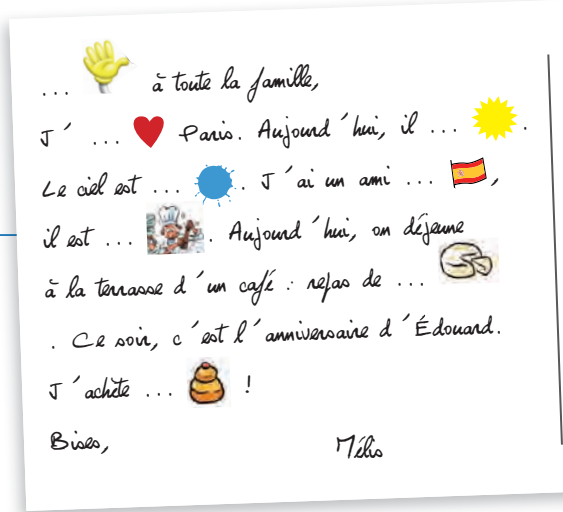 ... à toute la famille,
J' ... Paris. Aujourd'hui, il ... .
Le ciel est ... . J'ai un ami ... ,
il est ... . Aujourd'hui, on déjeune
à la terrasse d'un café : repas de ...
. Ce soir, c'est l'anniversaire d'Édouard.
J'achète ... !
Bises,
Mélis